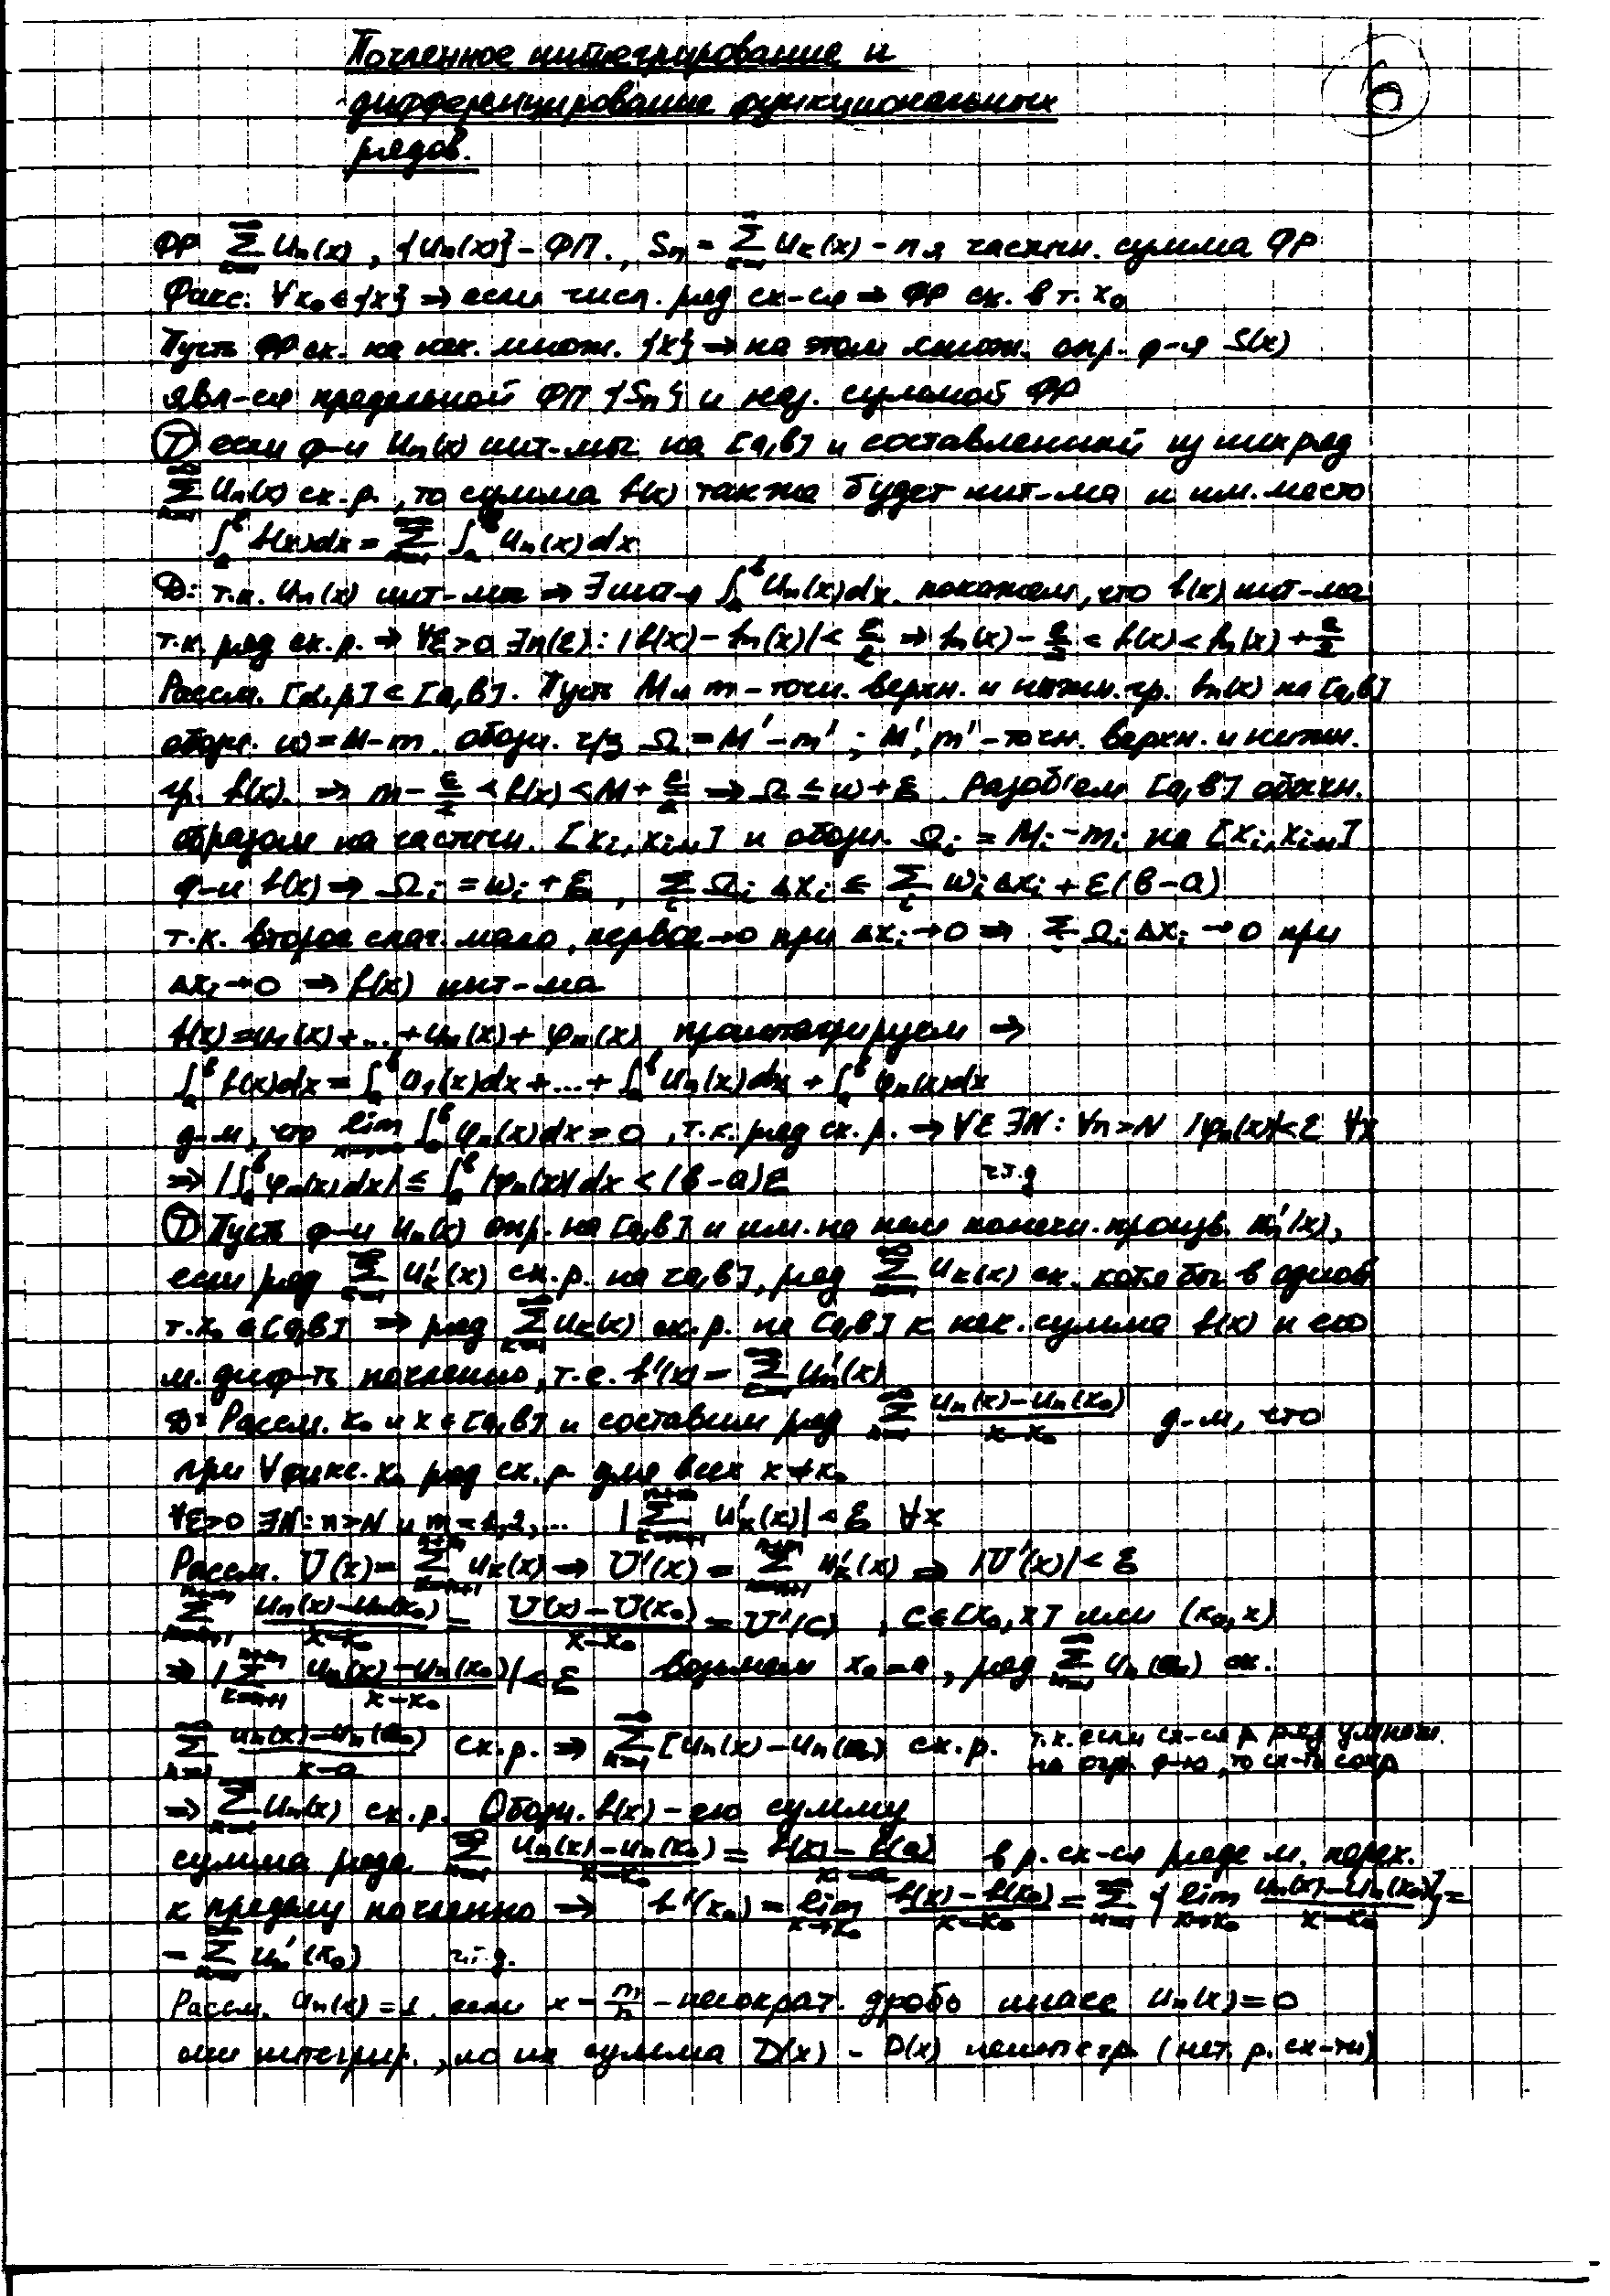 Почленное интегрирование и
дифференцирование функциональных
рядов.
6
ФР ∑ Un(x), {Un(x)} - ФП., Sn = ∑ Uк(x) - n-я частичн. сумма ФР
Фикс. ∀x₀∈{x} ⇒ если числ. ряд сх-ся ⇒ ФР сх. в т. x₀
Пусть ФР сх. на нек. множ. {x} ⇒ на этом множ. опр. ф-я S(x)
явл-ся предельной ФП {Sn} и наз. суммой ФР
Ⓣ если ф-и Un(x) инт-мы на [a,b] и составленный из них ряд
∑ Un(x) сх. р., то сумма f(x) также будет инт-ма и им. место
∫ₐᵇ f(x)dx = ∑ ∫ₐᵇ Un(x)dx
Д: т.к. Un(x) инт-мы ⇒ ∃ инт-л ∫ₐᵇ Un(x)dx. покажем, что f(x) инт-ма
т.к. ряд сх. р. ⇒ ∀ε>0 ∃n(ε): |f(x) - fn(x)| < ε/2 ⇒ fn(x) - ε/2 < f(x) < fn(x) + ε/2
Рассм. [α,β] ⊂ [a,b]. Пусть M и m - точн. верхн. и нижн. гр. fn(x) на [a,b]
обозн. ω = M-m. обозн. ч/з Ω = M'-m'; M', m' - точн. верхн. и нижн.
гр. f(x). ⇒ m - ε/2 < f(x) < M + ε/2 ⇒ Ω ≤ ω + ε. Разобъем [a,b] обычн.
образом на частичн. [xi, xi+1] и обозн. Ωi = Mi - mi на [xi, xi+1]
ф-и f(x) ⇒ Ωi = ωi + ε, ∑ Ωi Δxi ≤ ∑ ωi Δxi + ε(b-a)
т.к. второе слаг. мало, первое→0 при Δxi→0 ⇒ ∑ Ωi Δxi → 0 при
Δxi→0 ⇒ f(x) инт-ма
f(x) = u₁(x) + ... + un(x) + φn(x) проинтегрируем ⇒
∫ₐᵇ f(x)dx = ∫ₐᵇ u₁(x)dx + ... + ∫ₐᵇ un(x)dx + ∫ₐᵇ φn(x)dx
д-м, что lim ∫ₐᵇ φn(x)dx = 0, т.к. ряд сх. р. ⇒ ∀ε ∃N: ∀n>N |φn(x)|<ε ∀x
⇒ |∫ₐᵇ φn(x)dx| ≤ ∫ₐᵇ |φn(x)|dx < (b-a)ε ч.т.д
Ⓣ Пусть ф-и Un(x) опр. на [a,b] и им. на нем конечн. произв. Un'(x),
если ряд ∑ Uк'(x) сх. р. на [a,b], ряд ∑ Uк(x) сх. хотя бы в одной
т. x₀ ∈ [a,b] ⇒ ряд ∑ Uк(x) сх. р. на [a,b] к нек. сумме f(x) и его
м. диф-ть почленно, т.е. f'(x) = ∑ Un'(x)
Д: Рассм. x₀ и x ∈ [a,b] и составим ряд ∑ (Un(x) - Un(x₀))/(x-x₀) д-м, что
при ∀ фикс. x₀ ряд сх. р. для всех x≠x₀
∀ε>0 ∃N: n>N и m=1,2,... |∑ Uк'(x)| < ε ∀x
Рассм. U(x) = ∑ uк(x) ⇒ U'(x) = ∑ uк'(x) ⇒ |U'(x)| < ε
∑ (Un(x) - Un(x₀))/(x-x₀) = (U(x) - U(x₀))/(x-x₀) = U'(c), c∈[x₀,x] или (x₀,x)
⇒ |∑ (Un(x) - Un(x₀))/(x-x₀)| < ε возьмем x₀=a, ряд ∑ Un(a) сх.
∑ (Un(x) - Un(a))/(x-a) сх.р. ⇒ ∑ [Un(x) - Un(a)] сх.р. т.к. если сх-ся р ряд умнож.
на огр. ф-ю, то сх-ть сохр
⇒ ∑ Un(x) сх.р. Обозн. f(x) - его сумму
сумма ряда ∑ (Un(x) - Un(x₀))/(x-x₀) = (f(x) - f(a))/(x-a) в р. сх-ся ряде м. перех.
к пределу почленно ⇒ f'(x₀) = lim (f(x) - f(x₀))/(x-x₀) = ∑ {lim (Un(x) - Un(x₀))/(x-x₀)} =
= ∑ Un'(x₀) ч.т.д.
Рассм. Un(x) = 1. если x = m/n - несократ. дробь иначе Un(x) = 0
они интегрир., но их сумма D(x) - D(x) неинтегр (нет р. сх-ти)